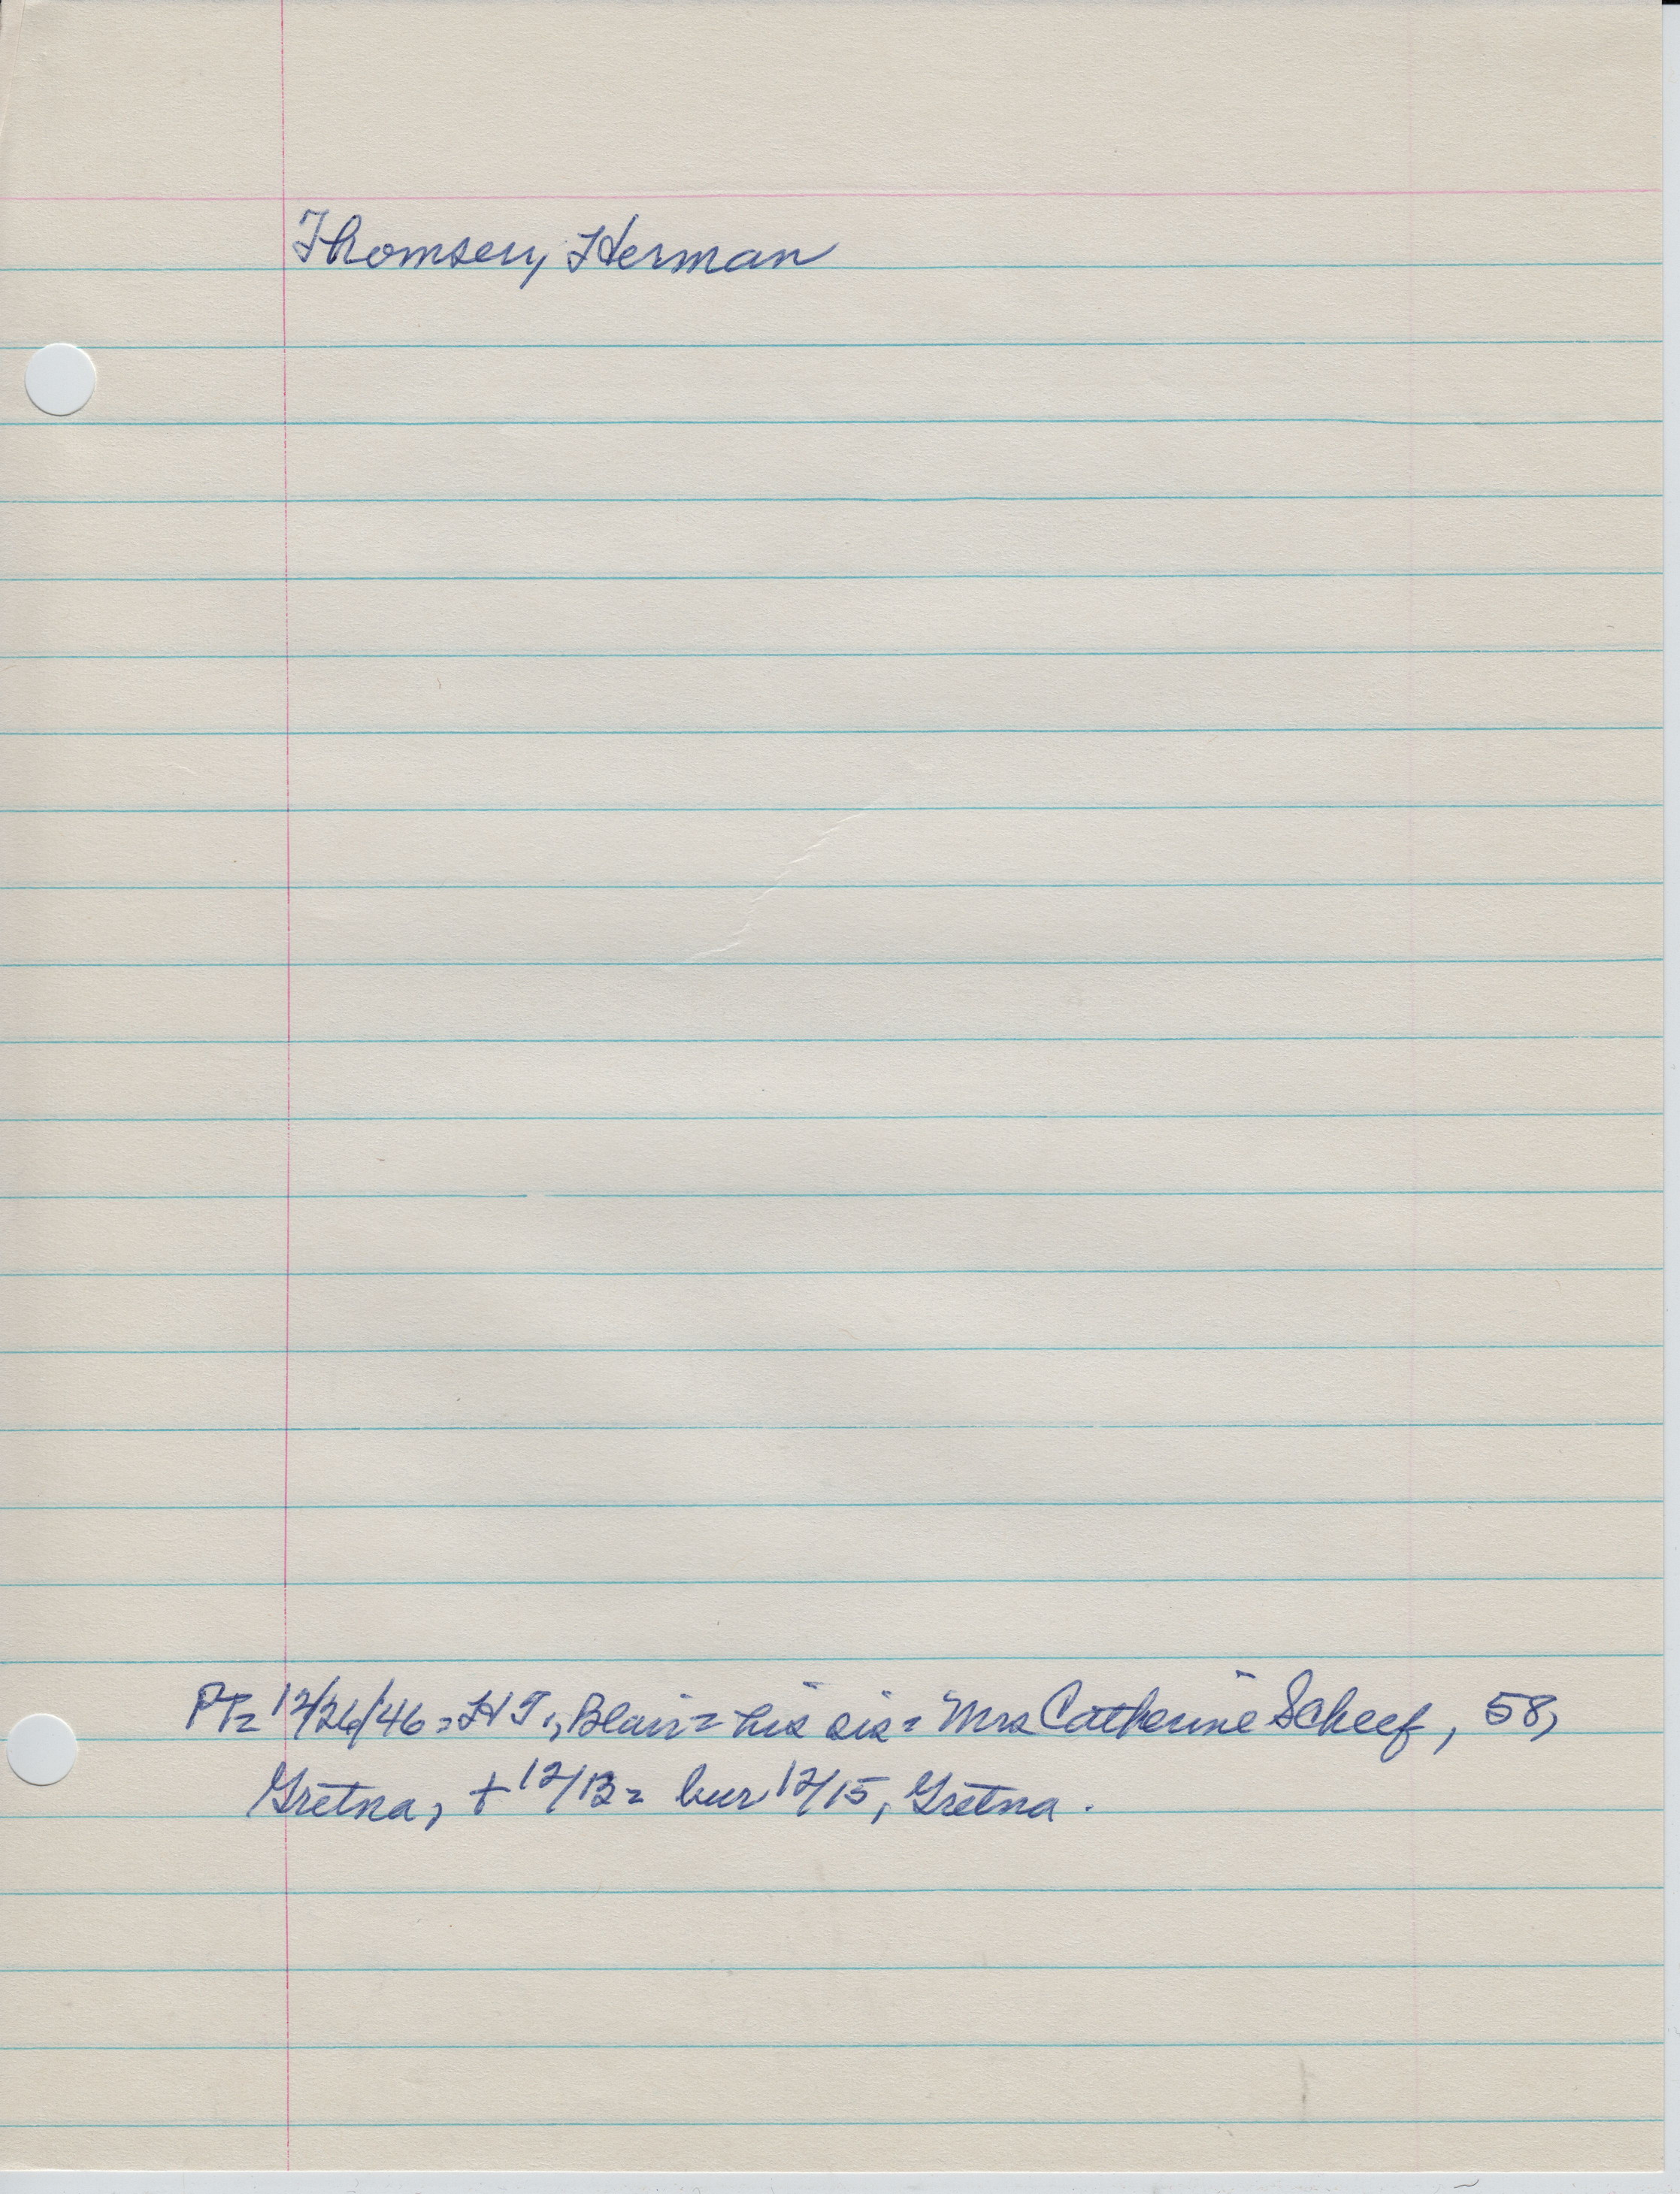 Thomsen, Herman
PT= 12/26/46 = HT., Blair = his sis = Mrs Catherine Scheef, 58,
Gretna, + 12/13 = bur 12/15, Gretna.